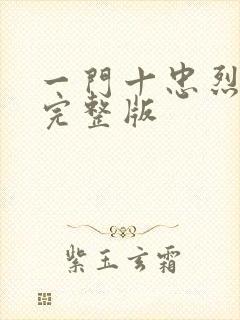 一門十忠烈
完整版
紫玉玄霜